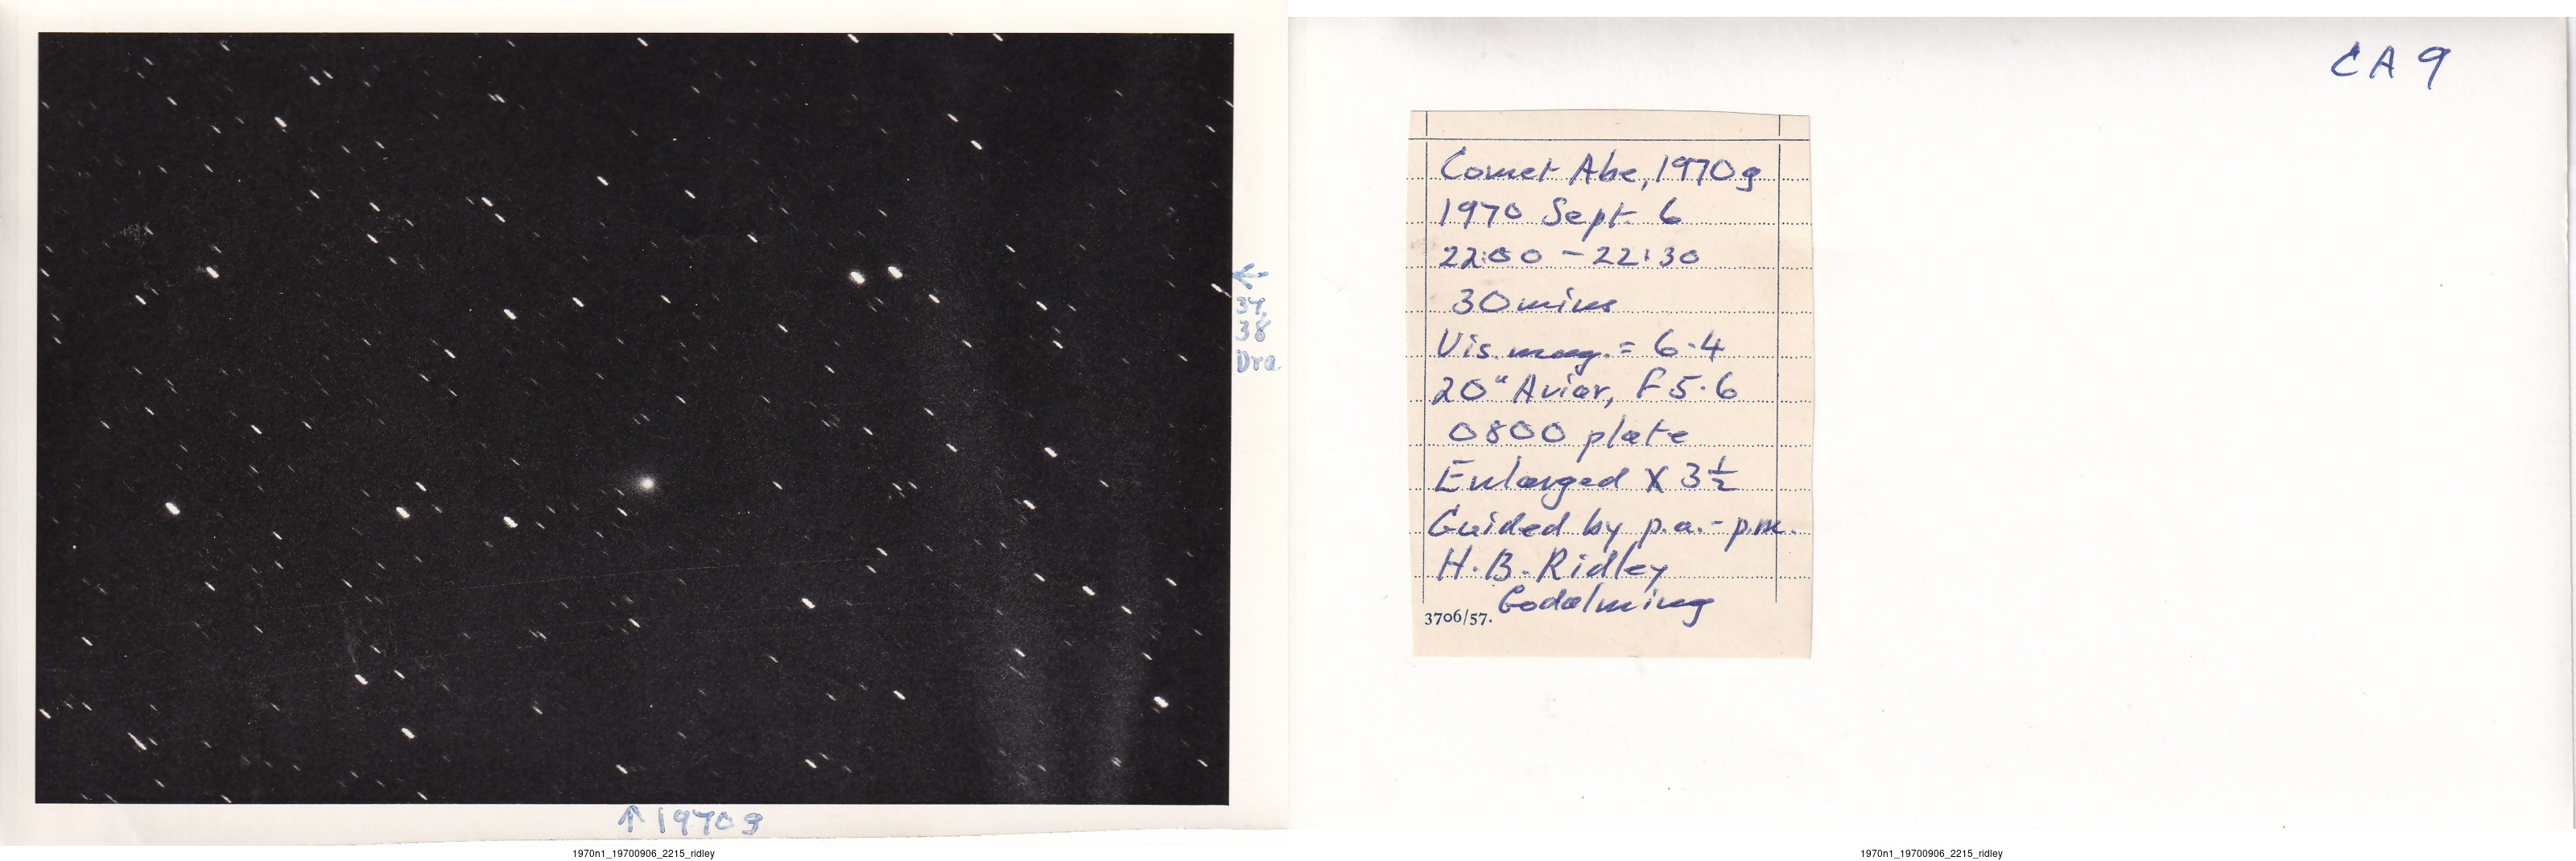 ← 37,
38
Dra.
↑ 1970g
1970n1_19700906_2215_ridley
CA 9
Comet Abe, 1970g
1970 Sept. 6
22:00 - 22:30
30 mins
Vis. mag. = 6.4
20" Aviar, F5.6
0800 plate
Enlarged X 3½
Guided by p.a. - p.m.
H.B. Ridley
Godalming
3706/57.
1970n1_19700906_2215_ridley